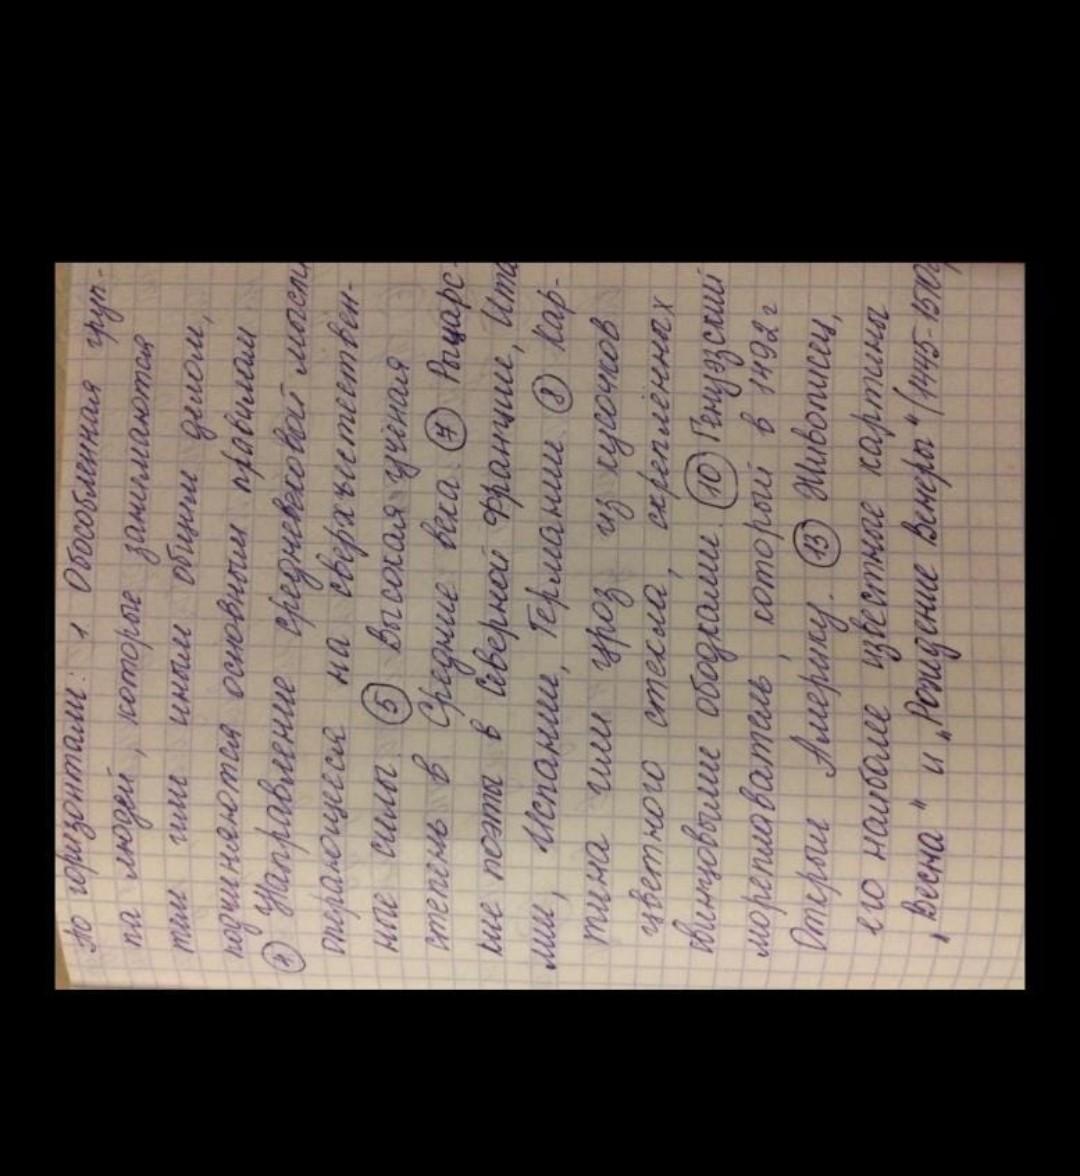 По горизонтали: 1 Обособленная груп-
па людей, которые занимаются
тем или иным общим делом,
подчиняются основным правилам
4 Направление средневековой мысли
опирающееся на сверхъестествен-
ные силы 5 высокая учёная
степень в Средние века. 7 Рыцарс-
кие поэты в Северной Франции, Ита
лии, Испании, Германии. 8 Кар-
тина или узоз из кусочков
цветного стекла, скреплённых
свинцовыми ободками. 10 Генуэзский
мореплаватель, который в 1492 г
Открыл Америку. 13 Живописец,
его наиболе известные картины
„Весна" и „Рождение Венеры" (1445-1510г